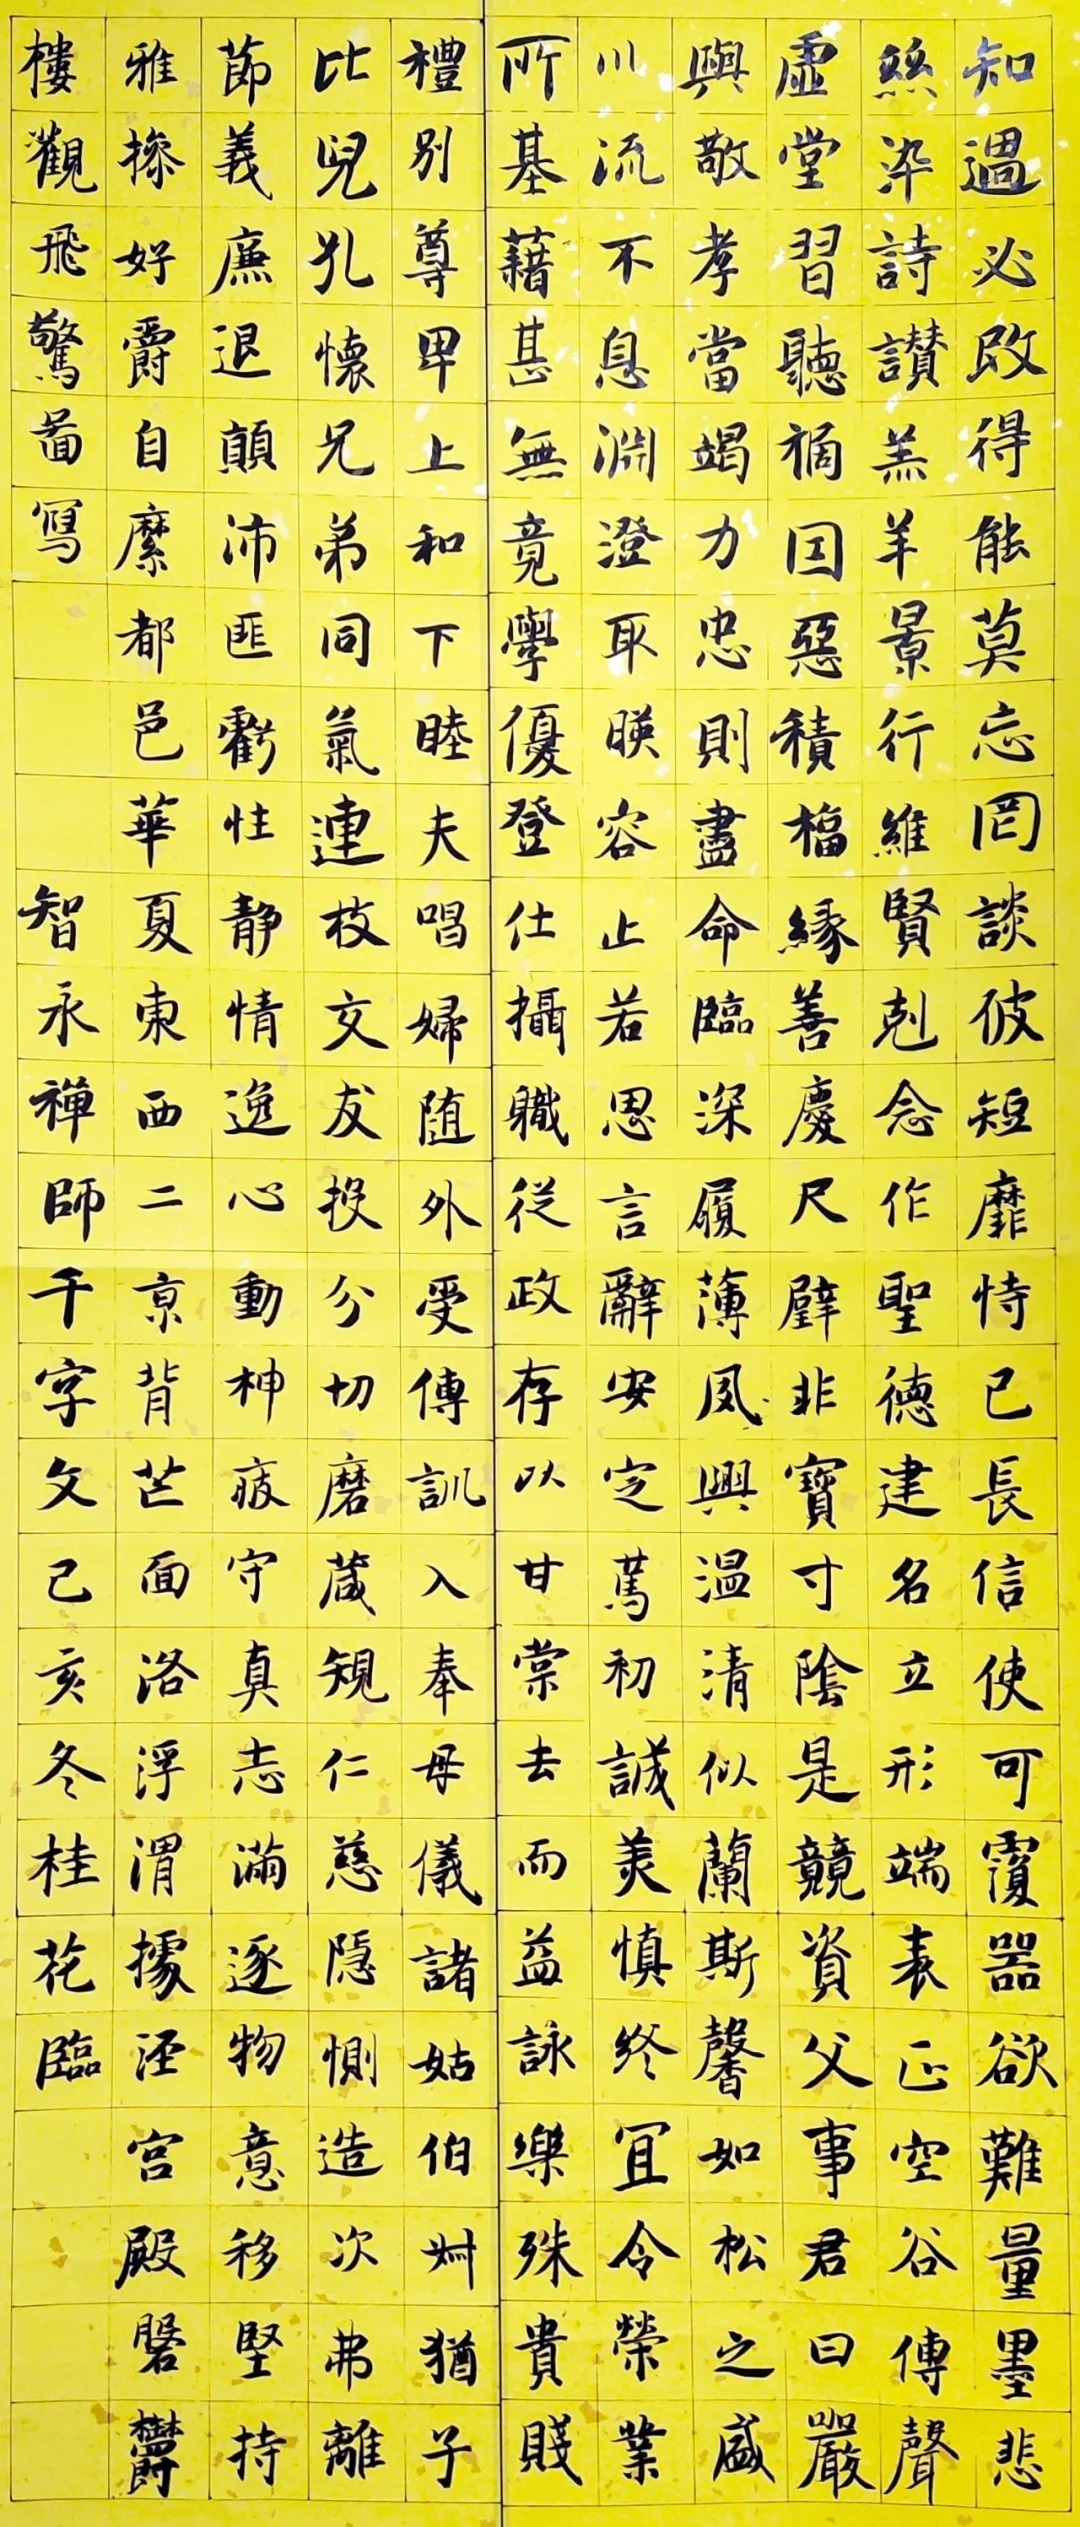 知過必改得能莫忘罔談彼短靡恃己長信使可覆器欲難量墨悲
絲染詩讃羔羊景行維賢剋念作聖德建名立形端表正空谷傳聲
虛堂習聽禍因惡積福緣善慶尺璧非寶寸陰是競資父事君曰嚴
與敬孝當竭力忠則盡命臨深履薄夙興溫清似蘭斯馨如松之盛
川流不息淵澄取暎容止若思言辭安定篤初誠美慎終宜令榮業
所基藉甚無竟學優登仕攝職從政存以甘棠去而益詠樂殊貴賤
禮別尊卑上和下睦夫唱婦随外受傅訓入奉母儀諸姑伯叔猶子
比兒孔懷兄弟同氣連枝交友投分切磨葴規仁慈隱惻造次弗離
節義廉退顛沛匪虧性静情逸心動神疲守真志滿逐物意移堅持
雅操好爵自縻都邑華夏東西二京背芒面洛浮渭據涇宮殿磐欝
樓觀飛驚啚寫
智永禪師千字文己亥冬桂花臨